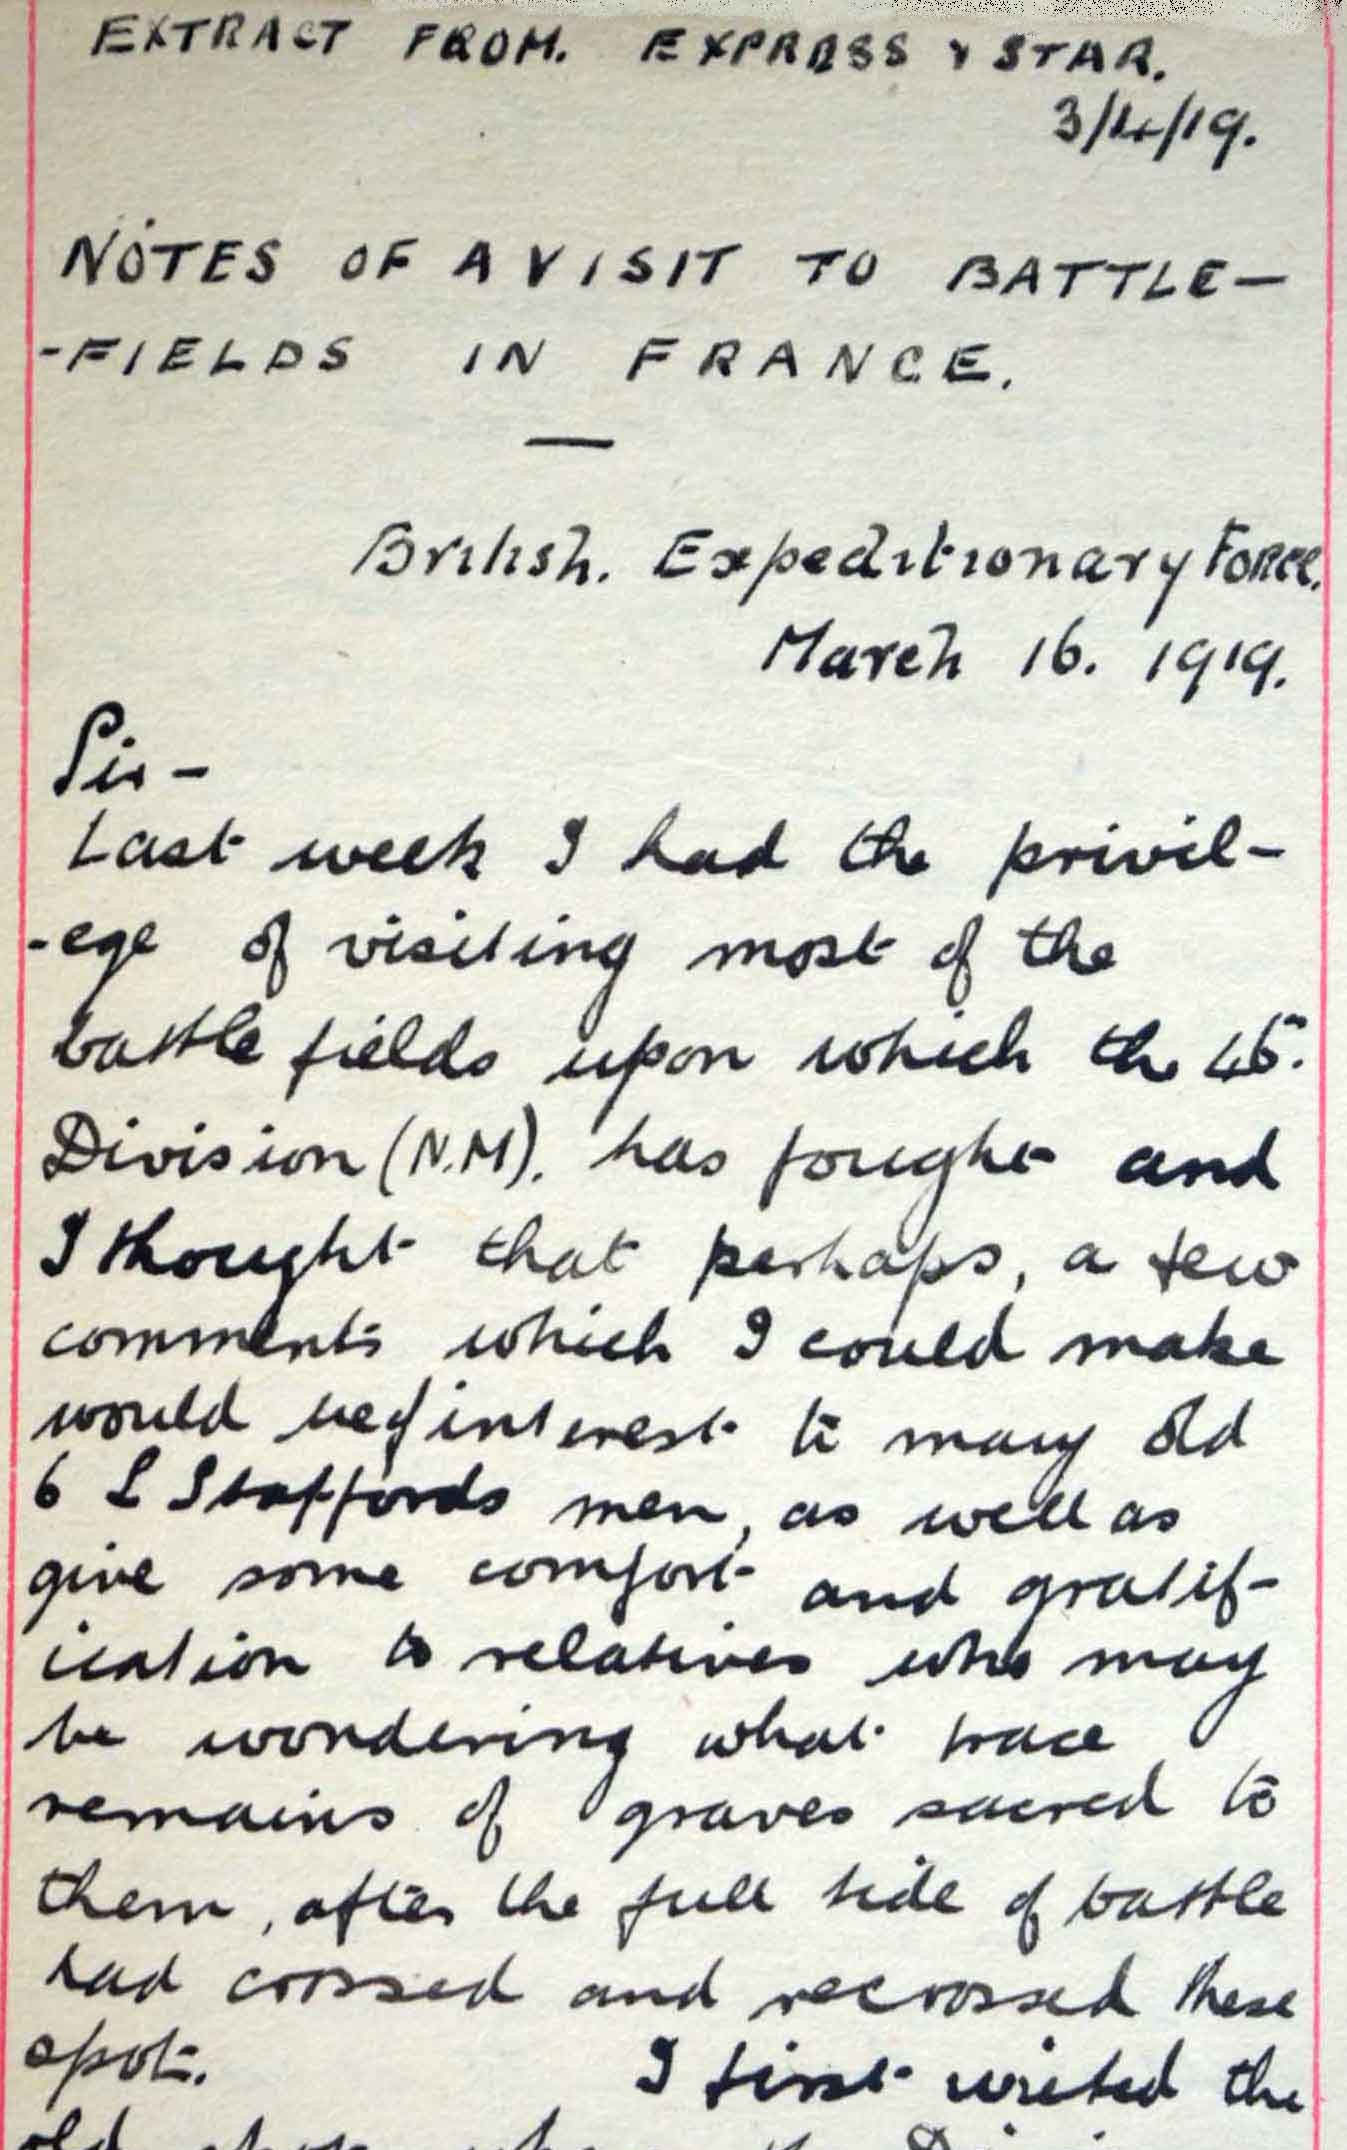 EXTRACT FROM. EXPRESS & STAR.
3/4/19.
NOTES OF A VISIT TO BATTLE-
-FIELDS IN FRANCE.
British. Expeditionary Force.
March 16. 1919.
Sir -
Last week I had the privil-
-ege of visiting most of the
battle fields upon which the 46.
Division (N.M). has fought and
I thought that perhaps, a few
comments which I could make
would be of interest to many old
6 L Staffords men, as well as
give some comfort and gratif-
ication to relatives who may
be wondering what trace
remains of graves sacred to
them, after the full tide of battle
had crossed and recrossed these
spots.
I first visited the
old